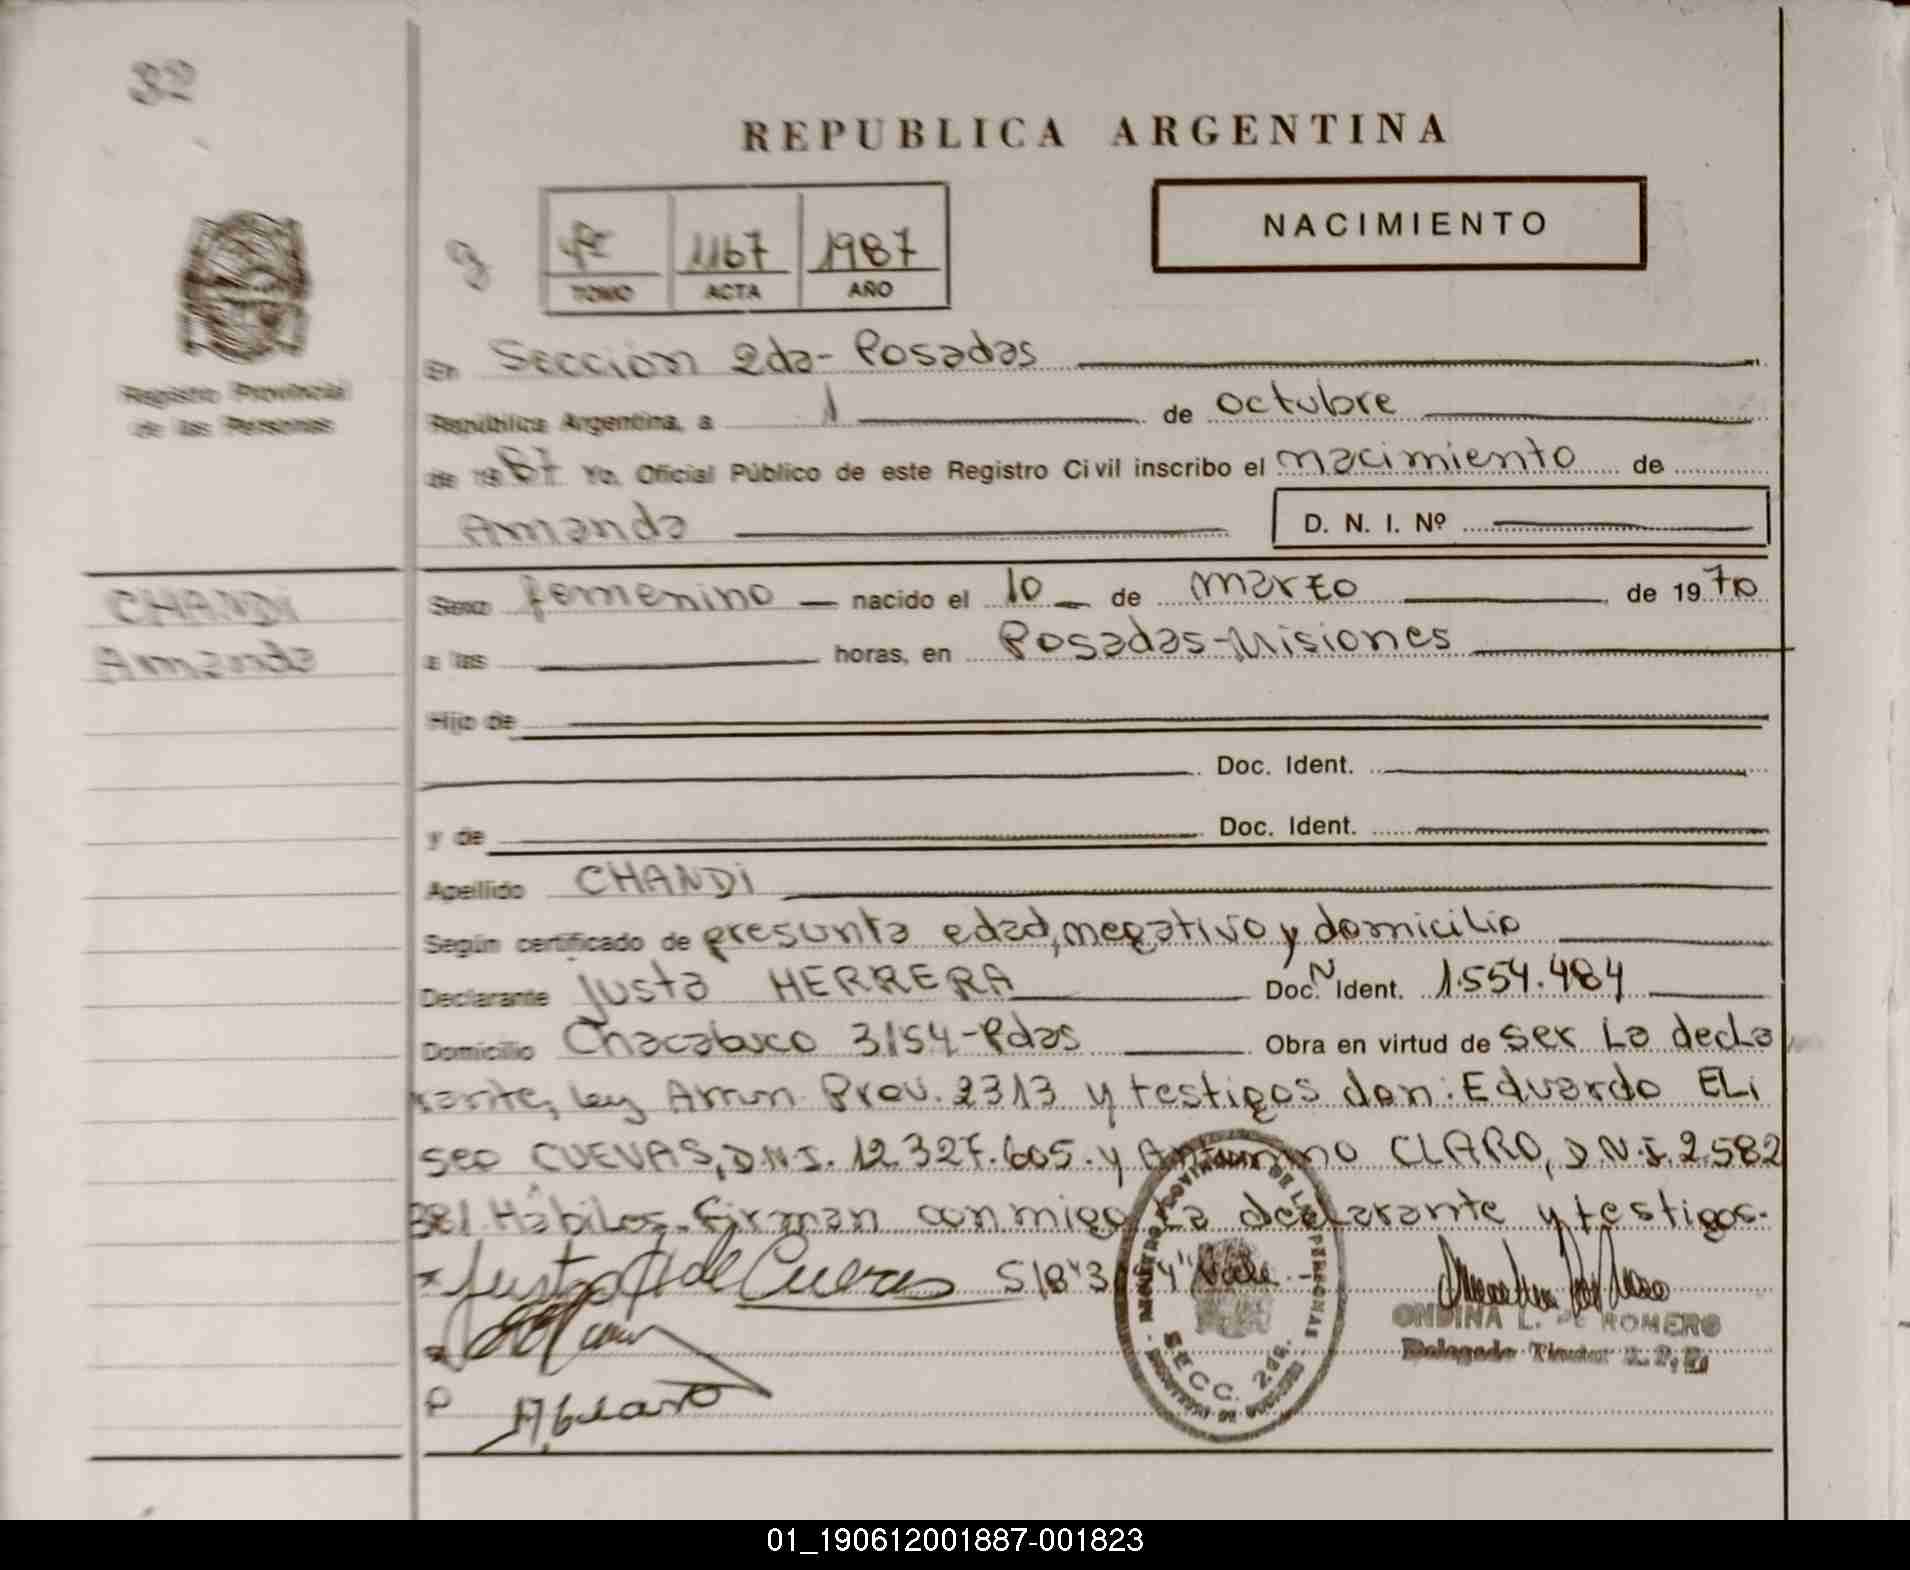 32
REPUBLICA ARGENTINA
NACIMIENTO
1167 1987
TOMO ACTA AÑO
Registro Provincial
de las Personas
En Sección 2da- Posadas
República Argentina, a 1 de octubre
de 1987 Yo, Oficial Público de este Registro Civil inscribo el nacimiento de
Amanda D. N. I. Nº
CHANDI
Amanda
Sexo femenino nacido el 10 de marzo de 1970
a las horas, en Posadas-Misiones
Hijo de
Doc. Ident.
y de Doc. Ident.
Apellido CHANDI
Según certificado de presunta edad, negativo y domicilio
Declarante Justa HERRERA Doc. Ident. 1.554.484
Domicilio Chacabuco 3154-Pdas Obra en virtud de ser la decla
rante, ley Prov. 2313 y testigos don: Eduardo ELi
seo CUEVAS, D.N.I. 12.327.605. y Antonino CLARO, D.N.I. 2.582
381. Hábiles. Firman conmigo la declarante y testigos.
Justa H de Cuevas S/R"3154"Vale.-
ONDINA L. DE ROMERO
Delegado Titular
A. Claro
SECC. 2da.
01_190612001887-001823